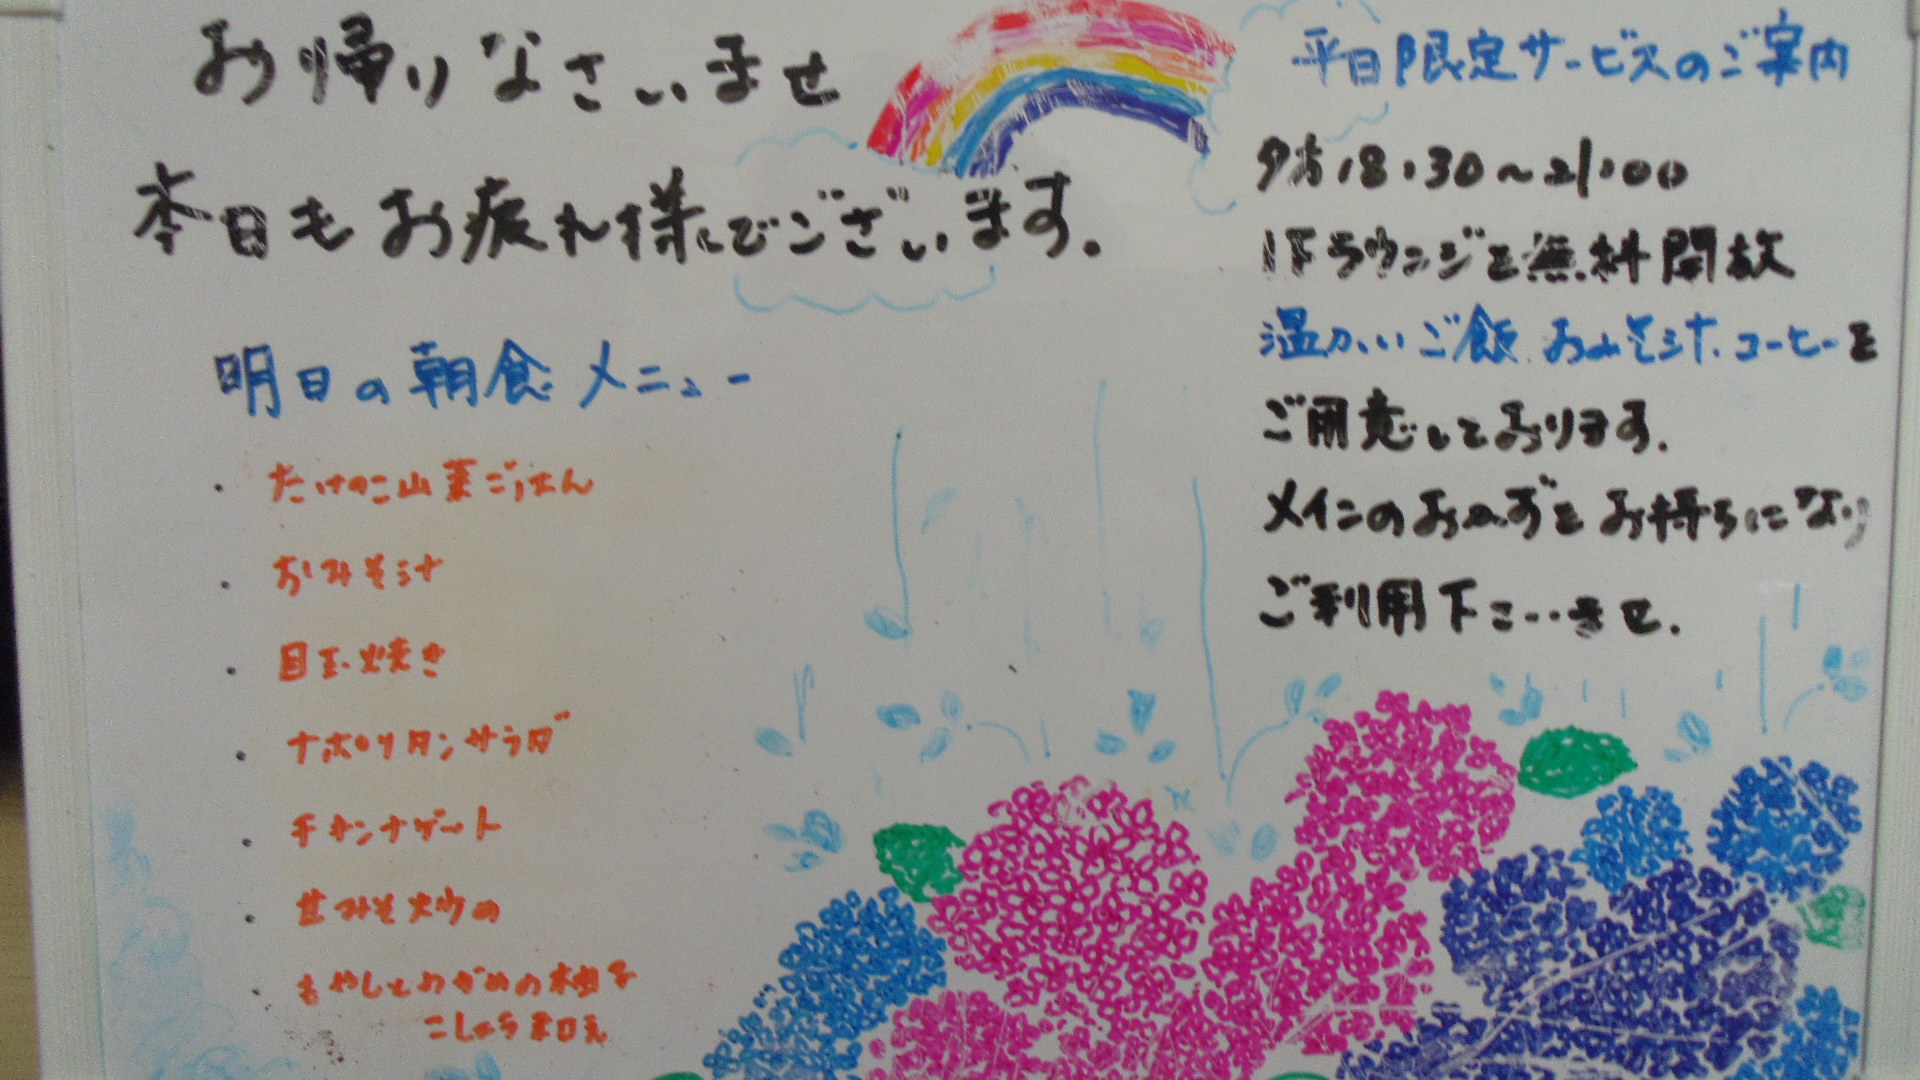 お帰りなさいませ
本日もお疲れ様でございます。
明日の朝食メニュー
・たけのこ山菜ごはん
・おみそ汁
・目玉焼き
・ナポリタンサラダ
・チキンナゲット
・甘みそ炒め
・もやしとわかめの柚子
こしょう和え
平日限定サービスのご案内
夕方18:30～21:00
1Fラウンジを無料開放
温かいご飯、おみそ汁、コーヒーを
ご用意しております。
メインのおかずをお持ちになり
ご利用下さいませ。